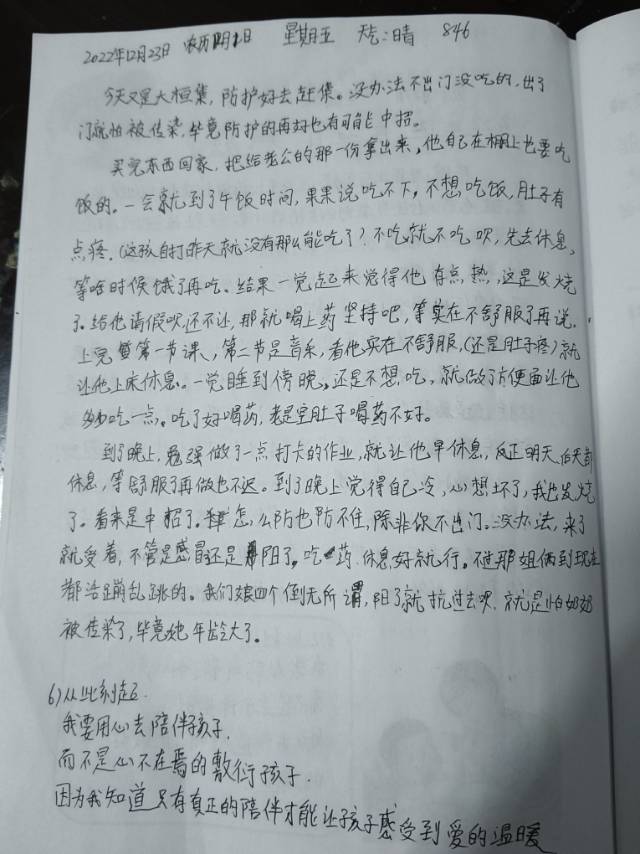 2022年12月23日 农历12月1日 星期五 天气:晴 846
今天又是大恒集,防护好去赶集。没办法不出门没吃的,出了
门就怕被传染,毕竟防护的再好也有可能中招。
买完东西回家,把给老公的那一份拿出来,他自己在棚上也要吃
饭的。一会就到了午饭时间,果果说吃不下,不想吃饭,肚子有
点疼,(这孩自打昨天就没有那么能吃了)不吃就不吃呗,先去休息,
等啥时候饿了再吃。结果一觉起来觉得他有点热,这是发烧
了。给他请假吹还不让,那就喝上药坚持吧,等实在不舒服了再说,
上完第一节课、第二节是音乐,看他实在不舒服,(还是肚子疼)就
让他上床休息。一觉睡到傍晚,还是不想吃,就做了方便面让他
多少吃一点。吃了好喝药,老是空肚子喝药不好。
到了晚上,勉强做了一点打卡的作业,就让他早休息,反正明天后天都
休息,等舒服了再做也不迟。到了晚上觉得自己冷,心想坏了,我也发烧
了。看来是中招了。怎么防也防不住,除非你不出门。没办法,来了
就受着,不管是感冒还是阳了。吃药休息好就行。不过那姐俩到现在
都活蹦乱跳的。我们娘四个倒无所谓,阳了就抗过去呗,就是怕奶奶
被传染了,毕竟她年龄大了。
6)从此刻起
我要用心去陪伴孩子,
而不是心不在焉的敷衍孩子.
因为我知道只有真正的陪伴才能让孩子感受到爱的温暖